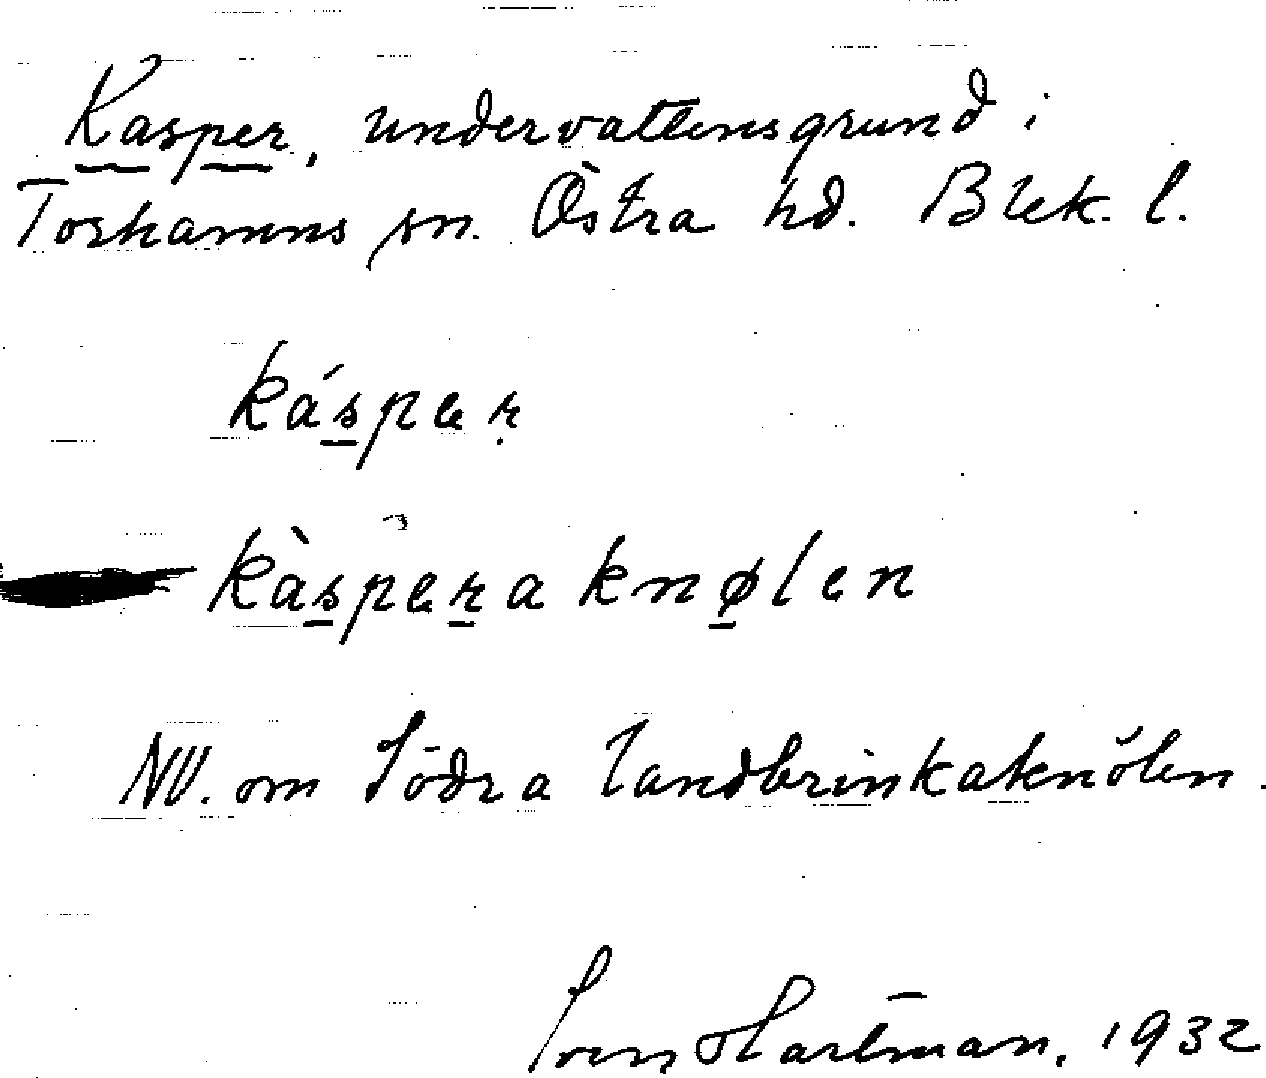 Kasper, undervattensgrund i
Torhamns sn. Östra hd. Blek. l.
káspeṛ
kàsperaknølen
NV. om Södra Landbrinkaknölen.
Sven Hartman, 1932